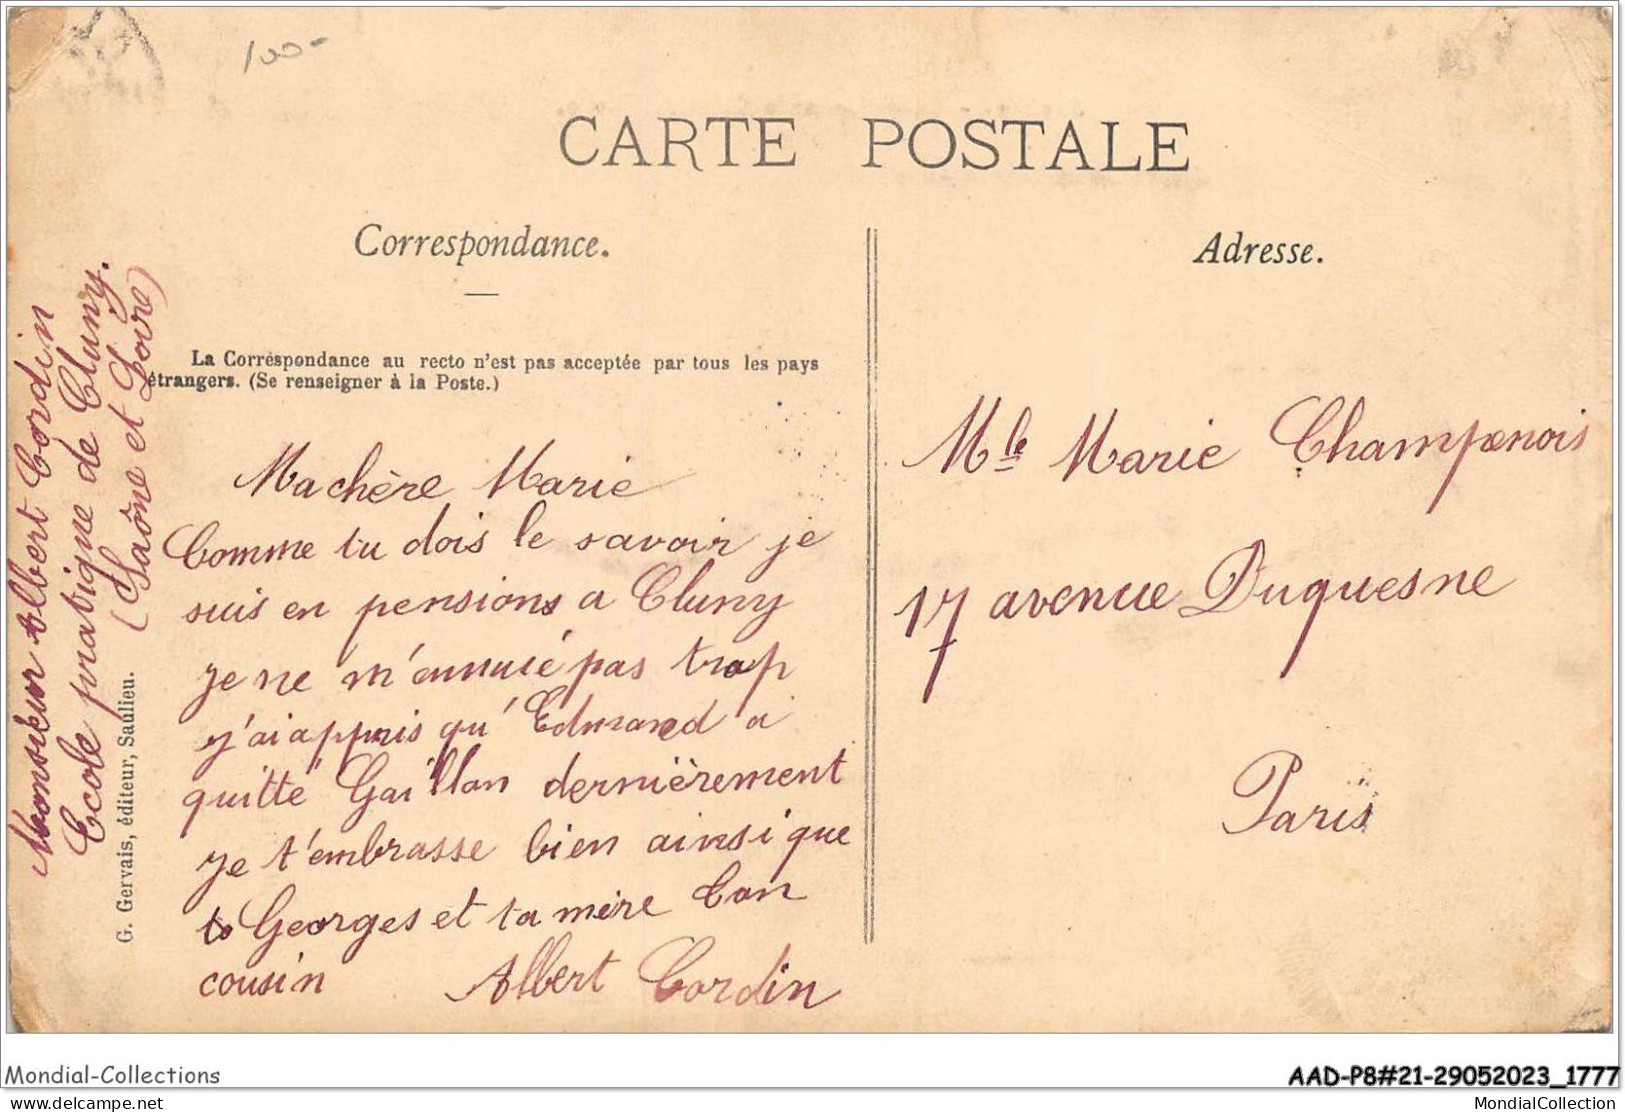 100-
CARTE POSTALE
Correspondance.
Adresse.
La Correspondance au recto n'est pas acceptée par tous les pays
étrangers. (Se renseigner à la Poste.)
Ma chère Marie
Comme tu dois le savoir je
suis en pensions a Cluny
je ne m'ennuié pas trop
j'ai appris qu'Edmond a
quitté Gaillon dernièrement
je t'embrasse bien ainsi que
Georges et ta mère Ton
cousin Albert Cordin
Mlle Marie Champenois
17 avenue Duquesne
Paris
Monsieur Albert Cordin
Ecole pratique de Cluny.
(Saône et Loire)
G. Gervais, éditeur, Saulieu.
Mondial-Collections
AAD-P8#21-29052023_1777
delcampe.net
MondialCollection